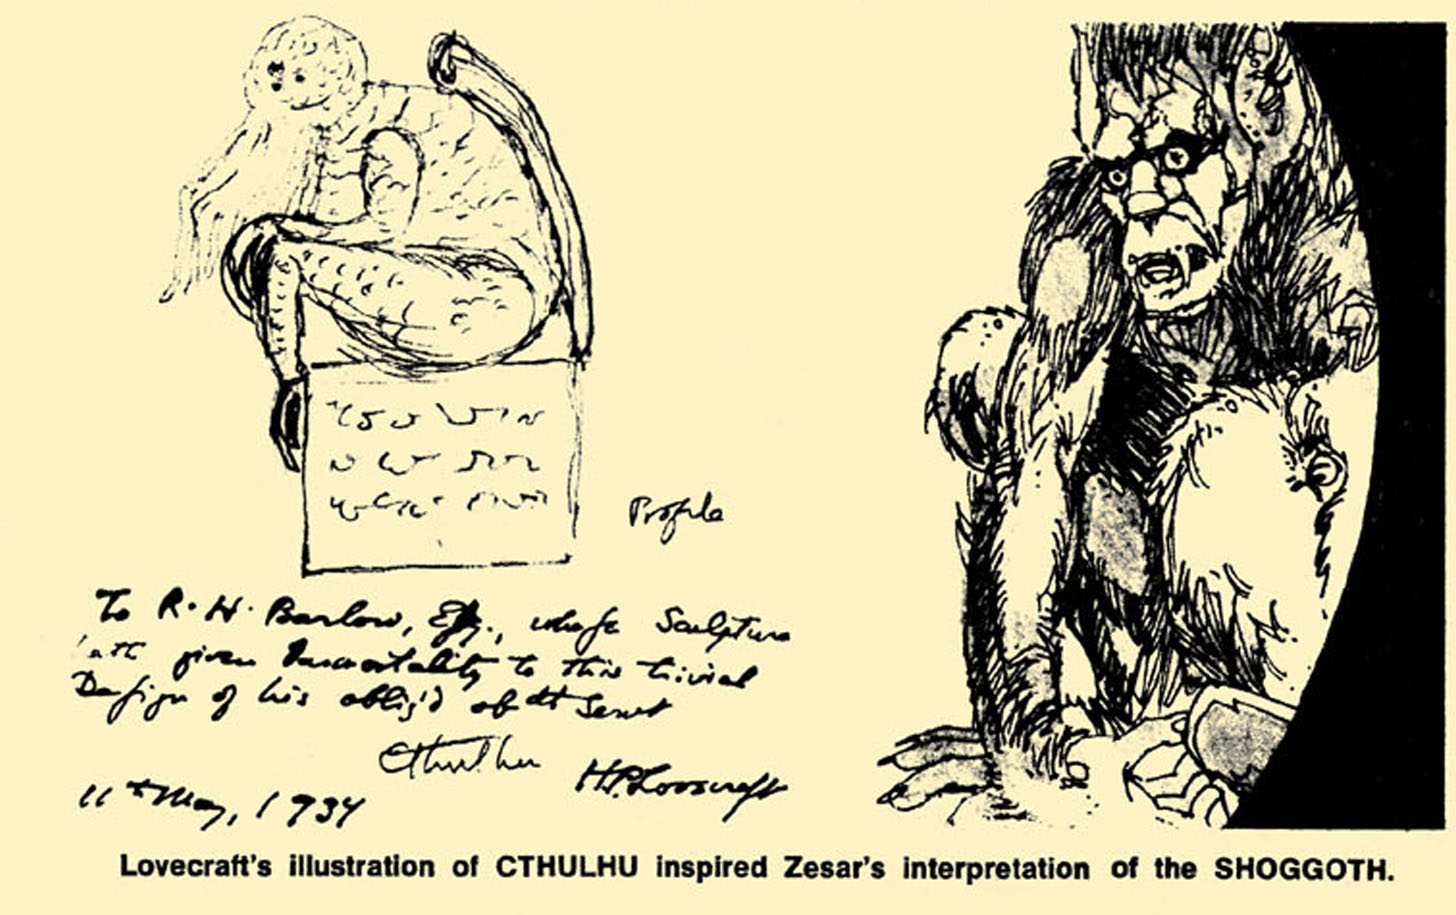 Profile
To R. H. Barlow, Esq., whose Sculpture
hath given Immortality to this trivial
Design of his oblig'd obdt Servt
Cthulhu
H.P. Lovecraft
11th May, 1934
Lovecraft's illustration of CTHULHU inspired Zesar's interpretation of the SHOGGOTH.